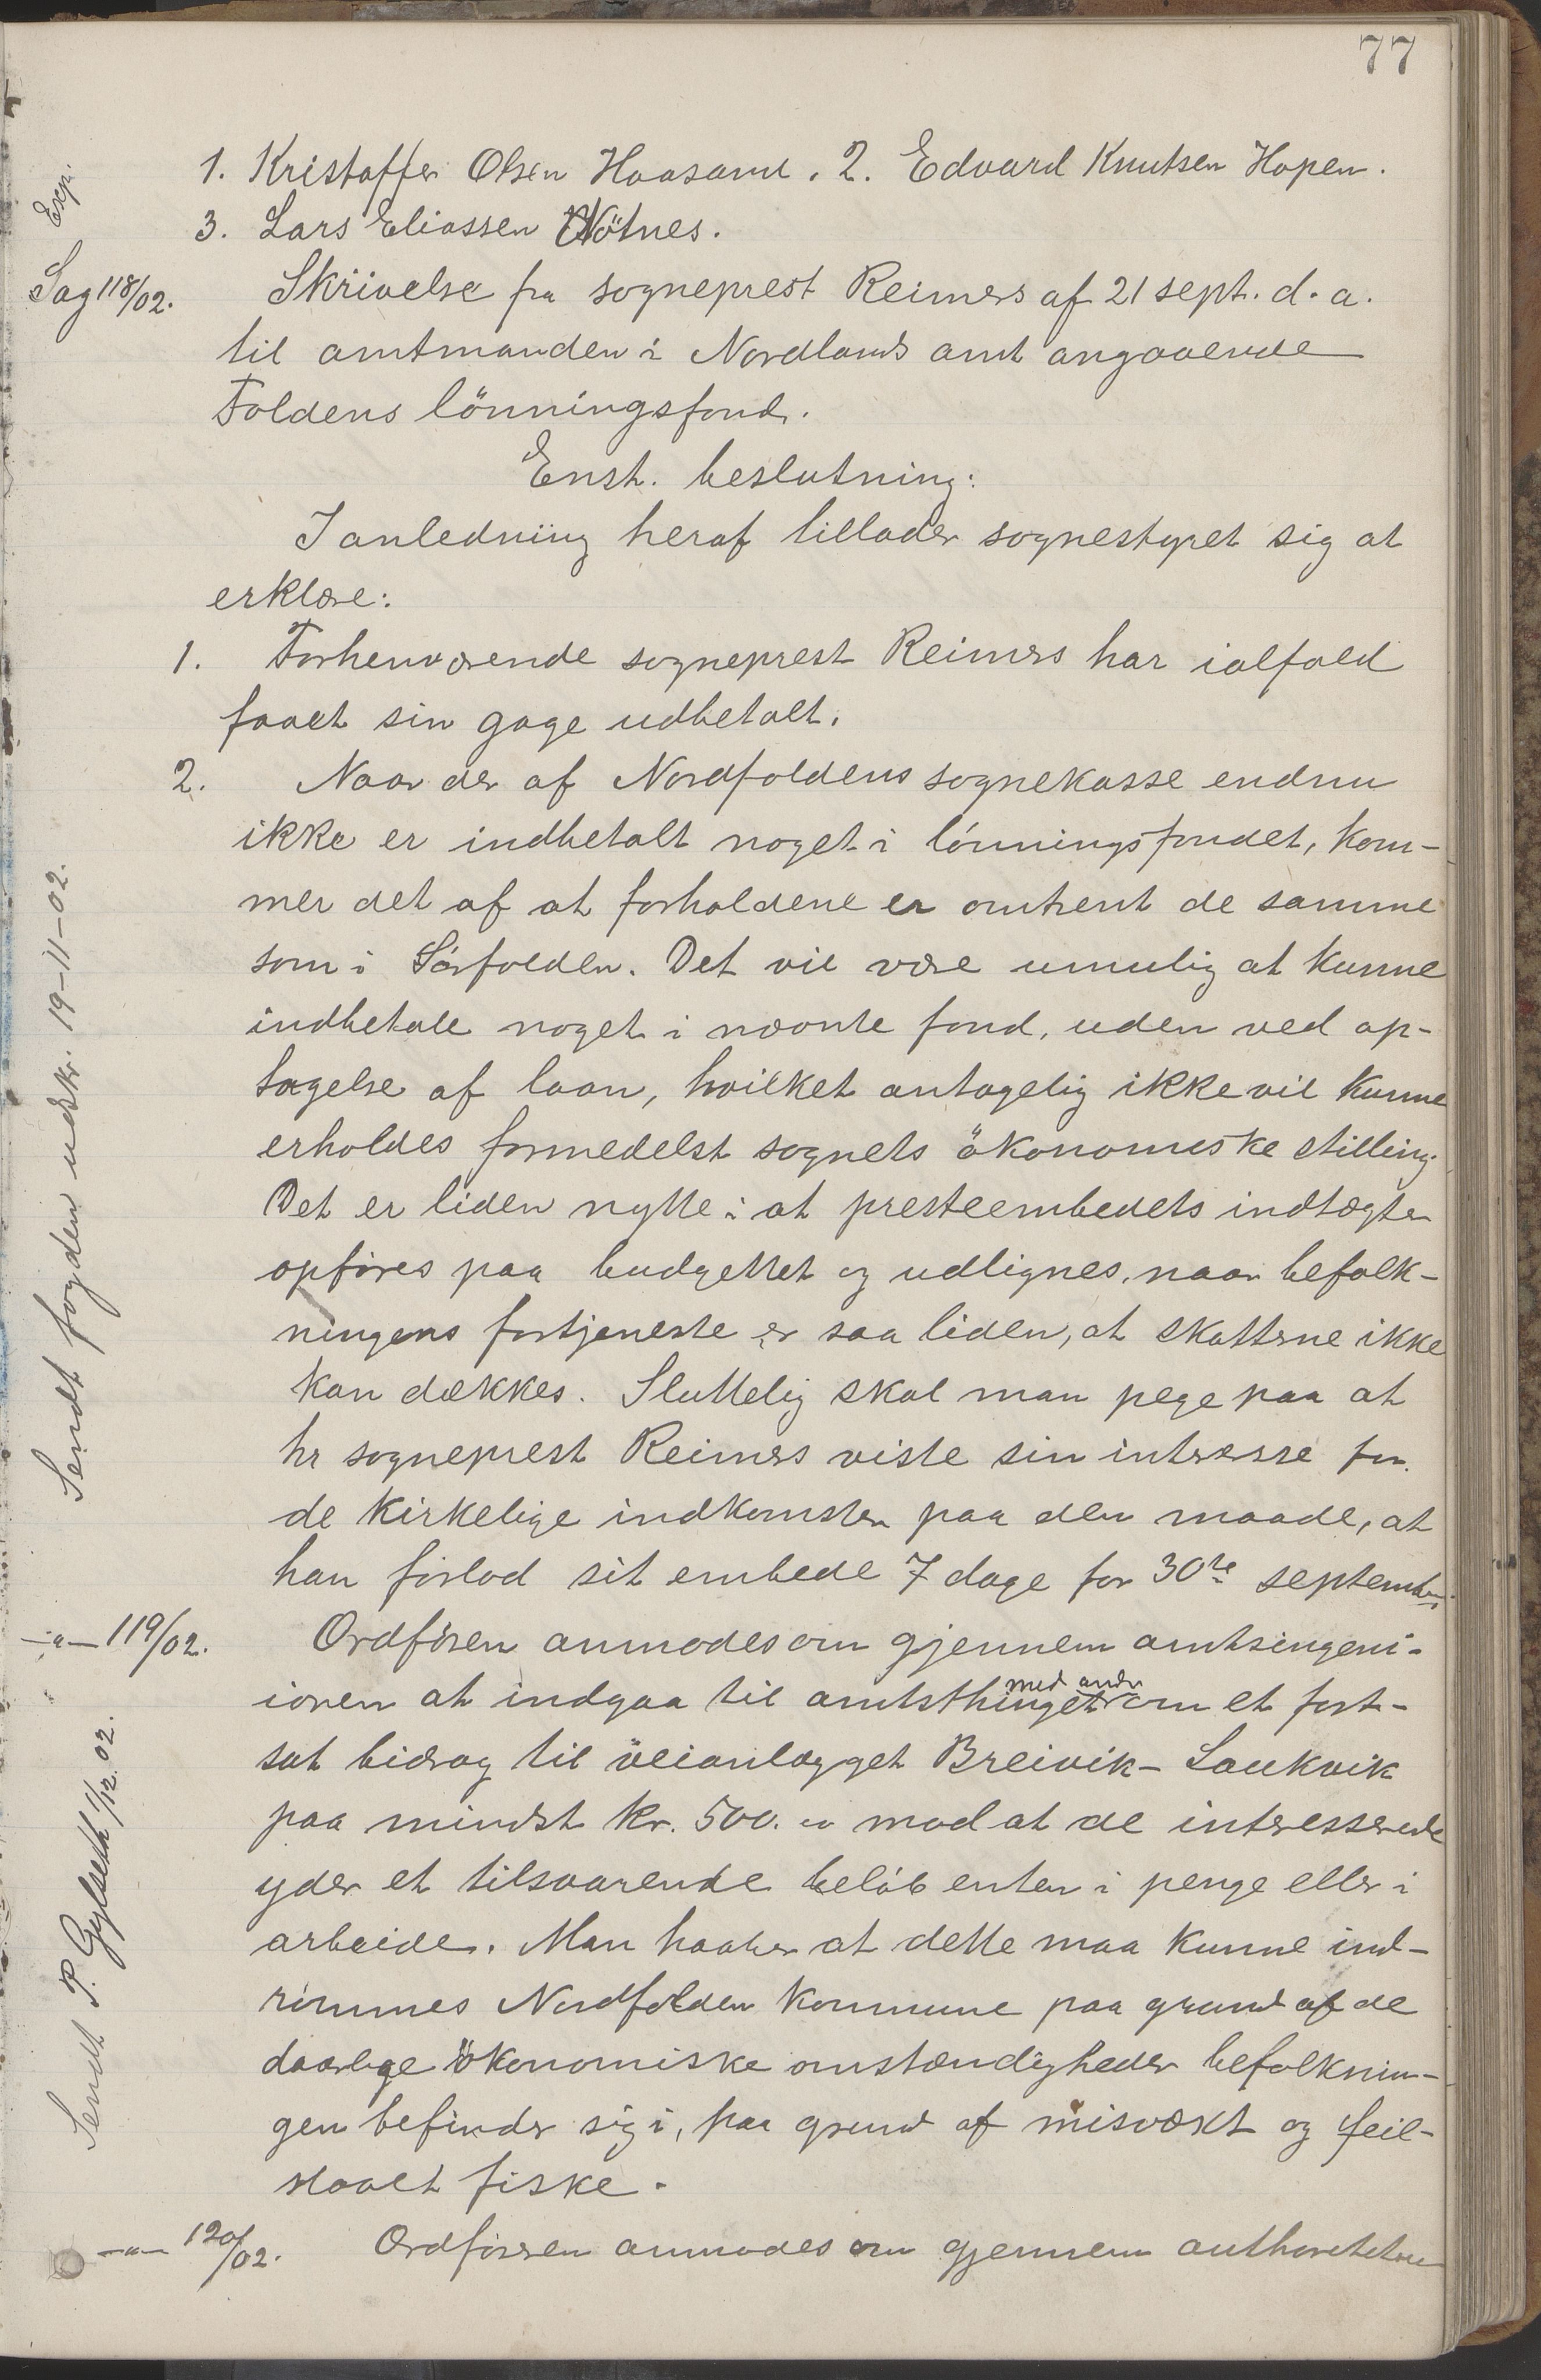 77
1. Kristoffer Olsen Haasand. 2. Edvard Knutsen Hopen.
3. Lars Eliassen Nötnes.
Exp.
Sag 118/02. Skrivelse fra sogneprest Reimers af 21 sept. d. a.
til amtmanden i Nordlands amt angaaende
Foldens lönningsfond.
Enst. beslutning:
I anledning heraf tillader sognestyret sig at
erklære:
1. Forhenværende sogneprest Reimers har ialfald
faaet sin gage udbetalt.
2. Naar der af Nordfoldens sognekasse endnu
ikke er indbetalt noget i lönningsfondet, kom-
mer det af at forholdene er omtrent de samme
som i Sörfolden. Det vil være umulig at kunne
indbetale noget i nævnte fond, uden ved op-
tagelse af laan, hvilket antagelig ikke vil kunne
erholdes formedelst sognets ökonomiske stilling.
Det er liden nytte i at presteembedets indtægter
opföres paa budgettet og udlignes, naar befolk-
ningens fortjeneste er saa liden, at skatterne ikke
kan dækkes. Sluttelig skal man pege paa at
hr sogneprest Reimers viste sin interesse for
de kirkelige indkomster paa den maade, at
han forlod sit embede 7 dage for 30te september.
Sendt fogden udskr. 19-11-02.
-"- 119/02. Ordfören anmodes om gjennem amtsingeni-
iören at indgaa til amtsthinget med andr. om et fort-
sat bidrag til veianlægget Breivik - Laukvik
paa mindst kr. 500. " mod at de interesserede
yder et tilsvarende belöb enten i penge eller i
arbeide. Man haaber at dette maa kunne ind-
römmes Nordfolden kommune paa grund af de
daarlige ökonomiske omstændigheder befolknin-
gen befinder sig i, paa grund af misvækst og feil-
slaaet fiske.
Sendt P. Gylseth 1/12. 02.
-"- 120/02. Ordföreren anmodes om gjennem authoriteterne